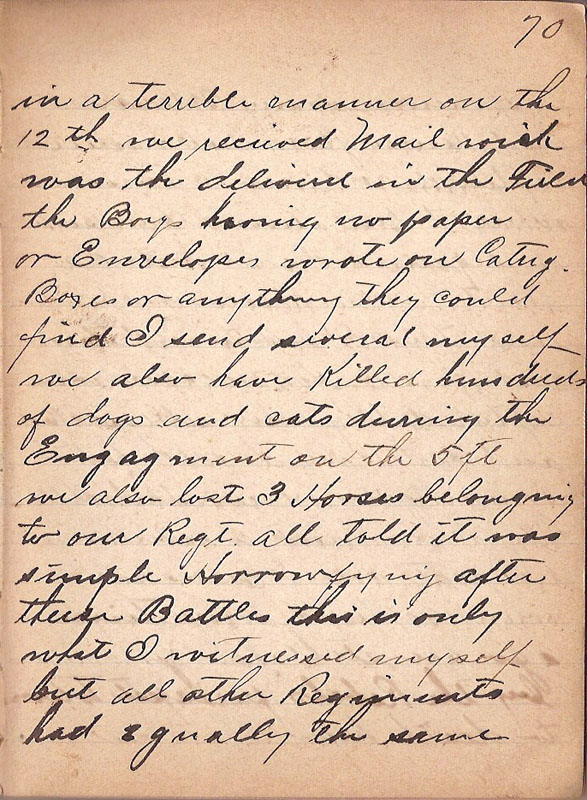 70
in a terrible manner on the
12th we recieved Mail wich
was the deliverd in the Field
the Boys having no paper
or Envelopes wrote on Catrg.
Boxes or anything they could
find I send several myself
we also have Killed hundreds
of dogs and cats durning the
Engagment on the 5ft
we also lost 3 Horses belonging
to our Regt. all told it was
simple Horrowfying after
these Battles this is only
what I witnessed myself
but all other Regiments
had Equally the same